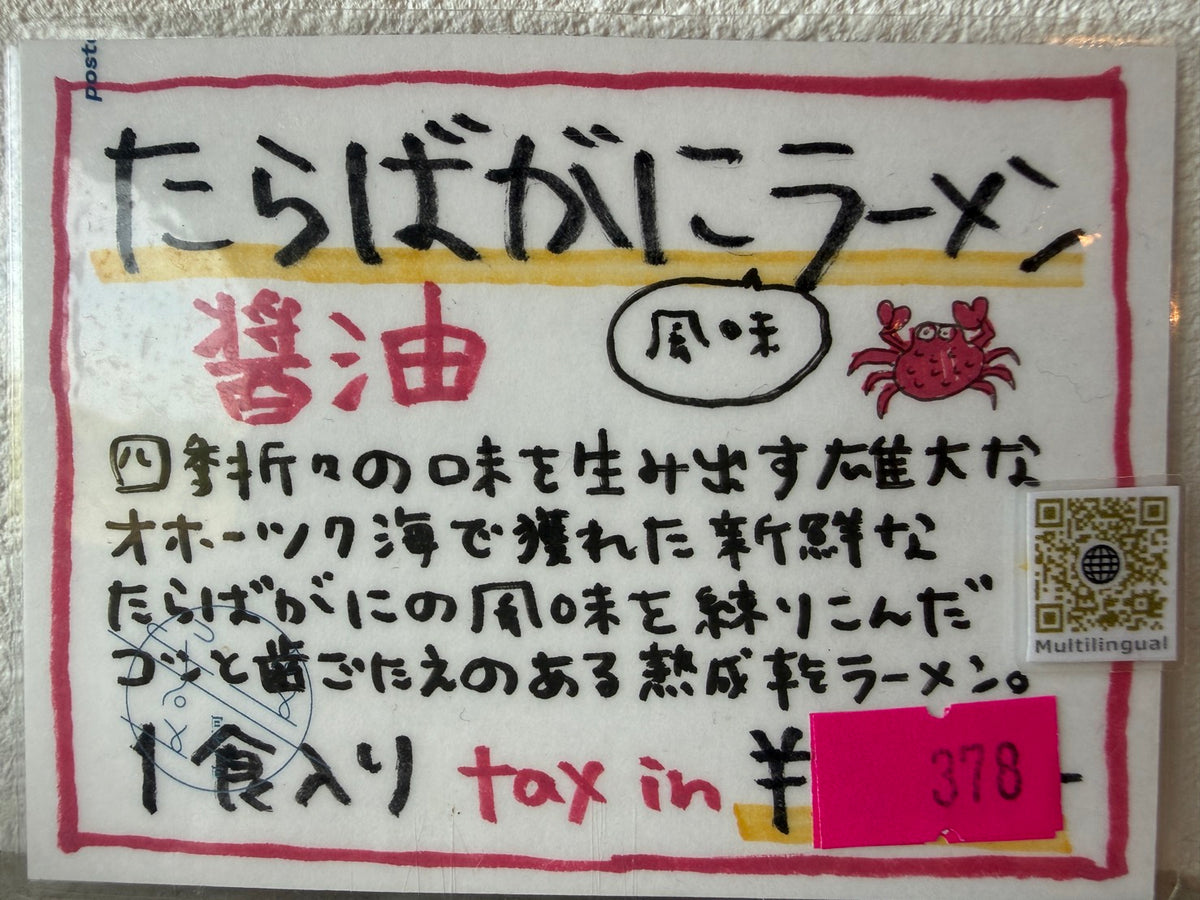 たらばがにラーメン
醤油
風味
四季折々の味を生み出す雄大な
オホーツク海で獲れた新鮮な
たらばがにの風味を練りこんだ
コシと歯ごたえのある熟成乾ラーメン。
1食入り tax in ¥ 378
Multilingual